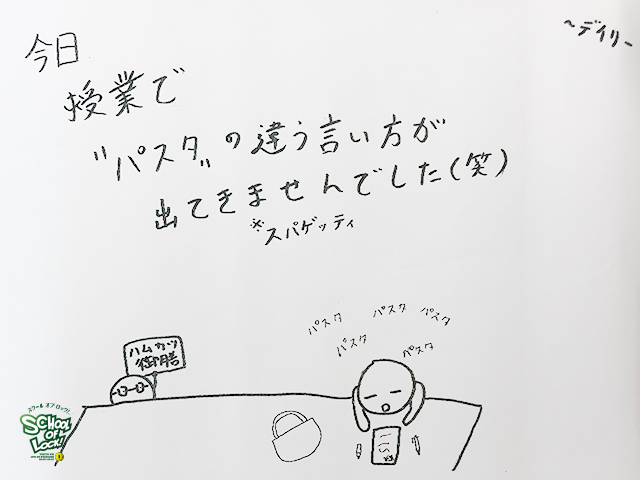 ~デイリー
今日
授業で
"パスタ"の違う言い方が
出てきませんでした(笑)
※スパゲッティ
パスタ
パスタ
パスタ
パスタ
パスタ
ハムカツ
御膳
スクール オブ ロック!
SCHOOL
OF
LOCK!